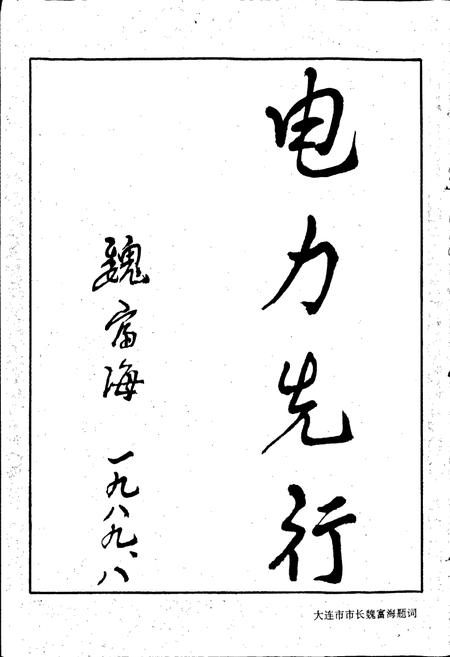 电力先行
魏富海
一九八九、八
大连市市长魏富海题词